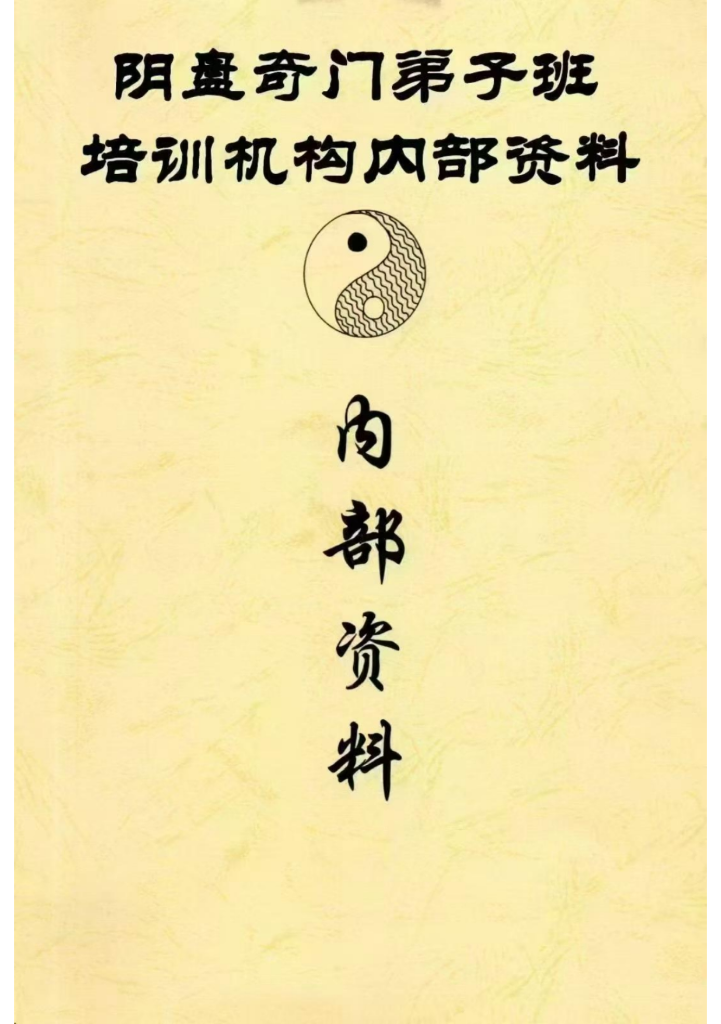 阴盘奇门弟子班
培训机构内部资料
内部资料